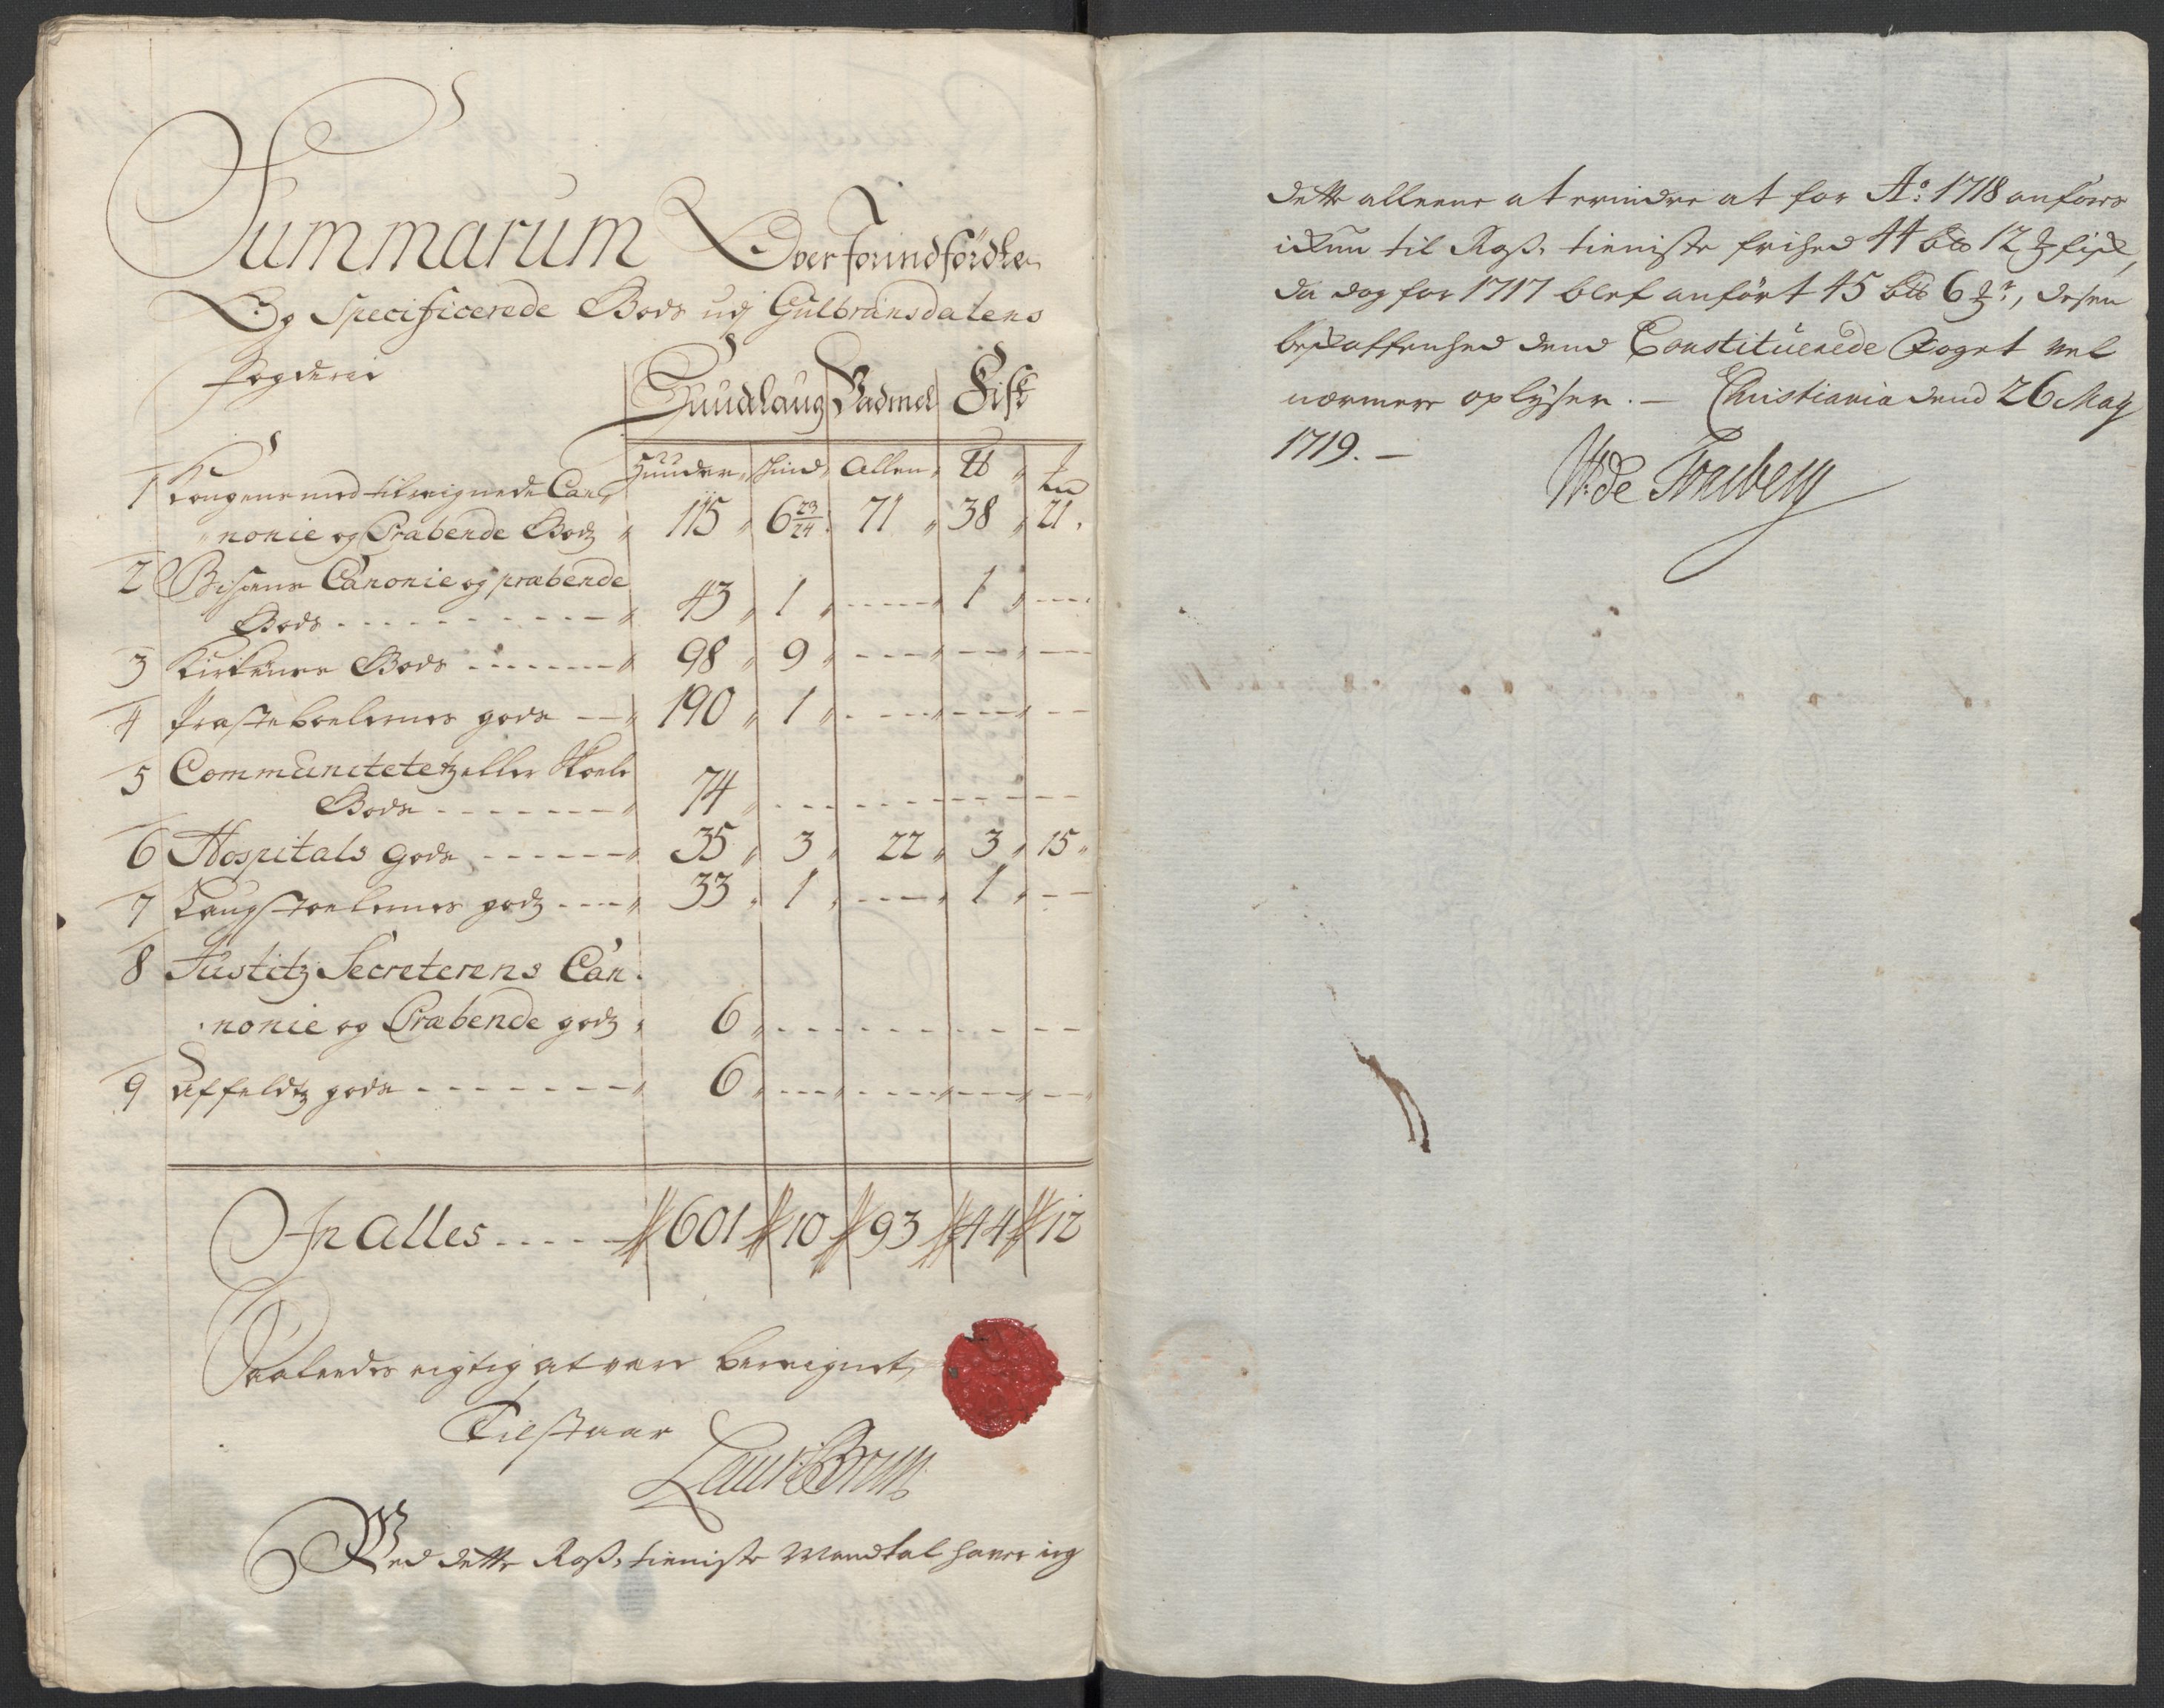 Summarum Over forindførdte
Og Specificerede Gods udj Gulbransdalens
fogderie
Huudlaug Vadmel Fisk
Huuder Skind Allen
1 Kongens med tileignede Can¬
nonie og Præbende Godz 115 6 23/24 71 38 21
2 Bispens Canonie og præbende
Gods 43 1 - 1 -
3 Kirkernes Gods 98 9 - - -
4 Præsteboelernes gods 190 1 - - -
5 Communitetetz eller Skoele
Gods 74 - - - -
6 Hospitals Gods 35 3 22 3 15
7 Laugstoelernes godz 33 1 - 1 -
8 Justitz Secreterens Can¬
nonie og Præbende godz 6 - - - -
9 Uffeldtz gods 6 - - - -
In Alles 601 10 93 44 12
Saaledes rigtig at være bereignet,
Tilstaar
Laur: Brun
Ved dette Ross¬tieniste Mandtal haver ieg
dette alleene at erindre at for Ao: 1718 anføres
ickun til Ross¬tieniste frihed 44 12 fisk,
da dog for 1717 blef anført 45 6, desen
beskaffenhed dend Constituerede Foget vel
nærmere oplyser. — Christiania dend 26 May
1719. —
de Tonsberg